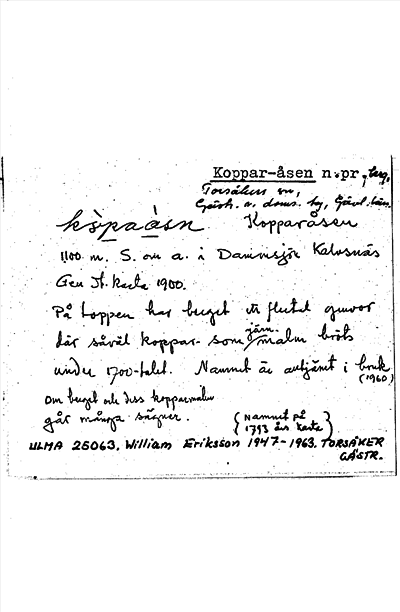 Koppar-åsen n.pr., berg,
Torsåkers sn,
Gästr. n. doms. hg, Gävl. län.
kòpaàsn Kopparåsen
1100 m. S. om a. i Dammsjön Kalvsnäs
Gen St. karta 1900.
På toppen har berget ett flertal gruvor
där såväl koppar- som järnmalm bröts
under 1700-talet. Namnet är avtjänt i bruk (1960)
Om berget och dess kopparmalm
går många sägner. (Namnet på
1793 års karta)
ULMA 25063. William Eriksson 1947-1963. TORSÅKER
GÄSTR.